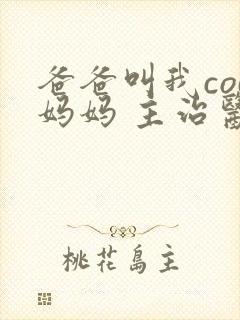 爸爸叫我co
妈妈 主治
桃花岛主